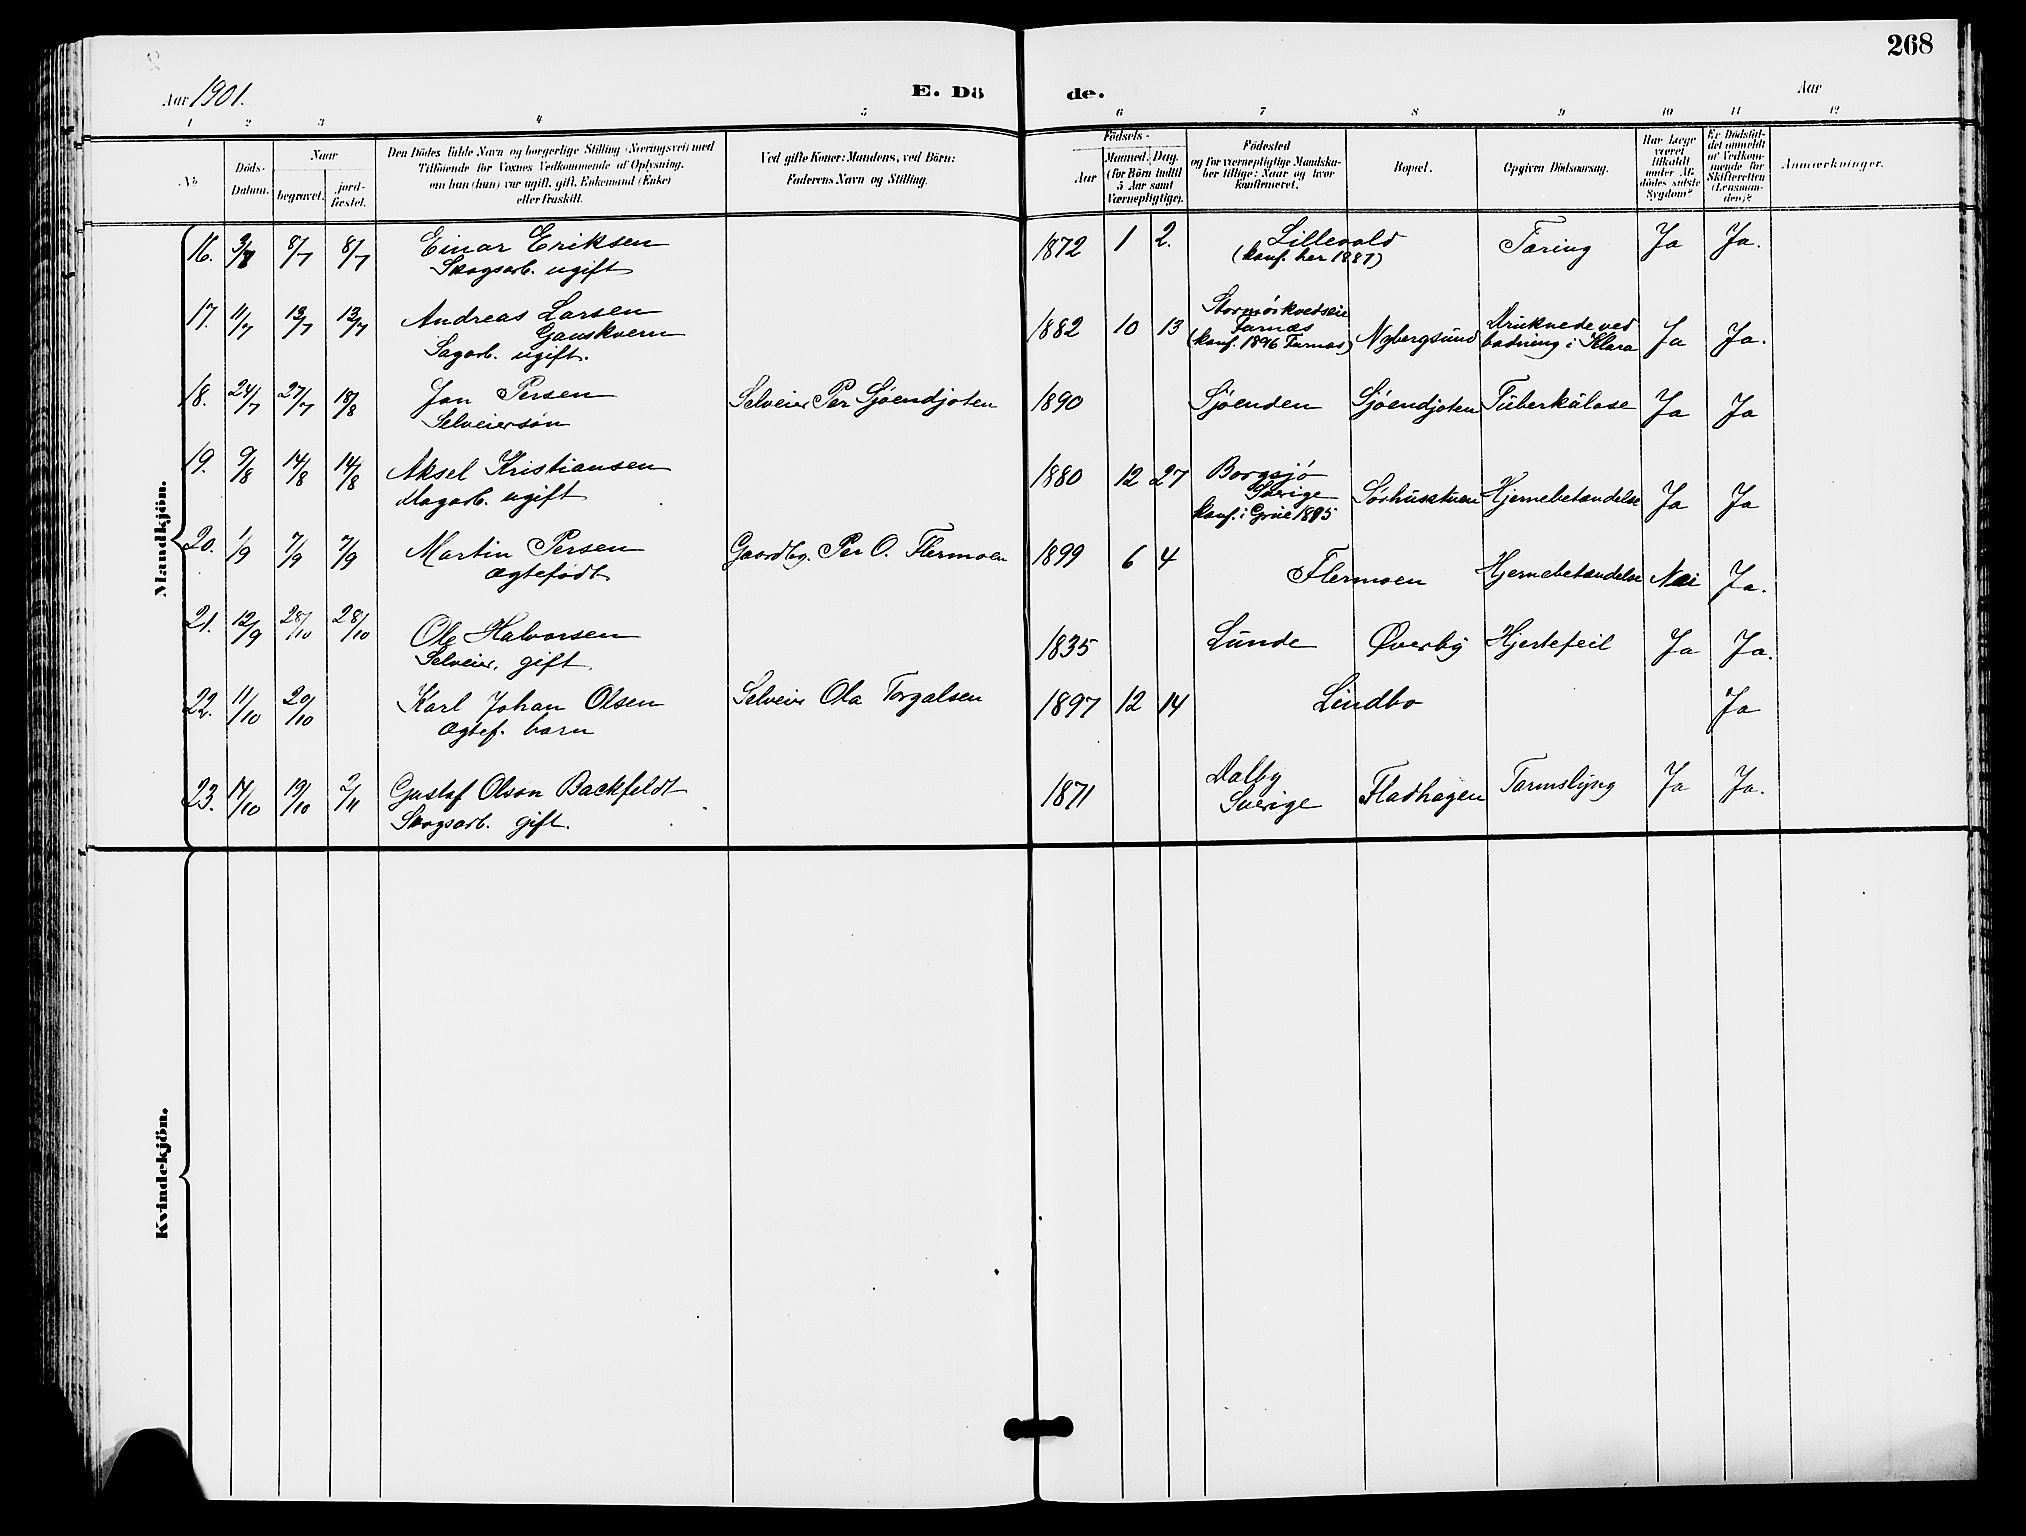 268
Aar 1901.
E. Dö
de.
Aar
1 2 3 4 5 6 7 8 9 10 11 12
No
Döds-
Datum.
Naar
begravet.
jord-
fæstet.
Den Dödes fulde Navn og borgerlige Stilling (Næringsvei) med
Tilföiende for Voxnes Vedkommende af Oplysning,
om han (hun) var ugift, gift, Enkemand (Enke)
eller fraskilt.
Ved gifte Koner: Mandens, ved Börn:
Faderens Navn og Stilling.
Födsels-
Aar
Maaned. Dag.
(for Börn indtil
5 Aar samt
Værnepligtige).
Födested
og for værnepligtige Mandska-
ber tillige: Naar og hvor
konfirmeret.
Bopæl.
Opgiven Dödsaarsag.
Har Læge
været
tilkaldt
under Af-
dödes sidste
Sygdom?
Er Dödsfal-
det anmeldt
af Vedkom-
mende for
Skifteretten
(Lensman-
den)?
Anmærkninger.
Mandkjön.
16. 3/7 8/7 8/7 Einar Eriksen 1872 1 2. Lillevold Tæring Ja Ja.
Skogsarb. ugift (konf. her 1887)
17. 11/7 13/7 13/7 Andreas Larsen 1882 10 13 Stormörkvedseie Nybergsund Druknede ved Ja Ja.
Ganskvern Furnæs badning i Klara
Sagarb. ugift. (konf. 1896 Furnæs)
18. 24/7 27/7 18/8 Jon Persen Selveier Per Sjøendjoten 1890 Sjøenden Sjøendjoten Tuberkulose Ja Ja
Selveiersøn
19. 9/8 14/8 14/8 Aksel Kristiansen 1880 12 27 Borgsjø Sørhusstuen Hjernebetændelse Ja Ja
Magarb. ugift Sverige
konf. i Grue 1895
20. 1/9 7/9 7/9 Martin Persen Gaardbg. Per O. Flermoen 1899 6 4 Flermoen Hjernebetændelse Nei Ja.
Ægtefødt
21. 12/9 28/10 28/10 Ole Halvorsen 1835 Lunde Øverby Hjertefeil Ja Ja.
Selveier, gift
22. 11/10 20/10 Karl Johan Olsen Selveier Ola Torgalsen 1897 12 14 Lindbo Ja
Ægtef. barn
23. 14/10 19/10 2/11 Gustaf Olson Backfeldt 1871 Dalby Fladhagen Tarmslyng Ja Ja.
Skogsarb. gift. Sverige
Kvindekjön.